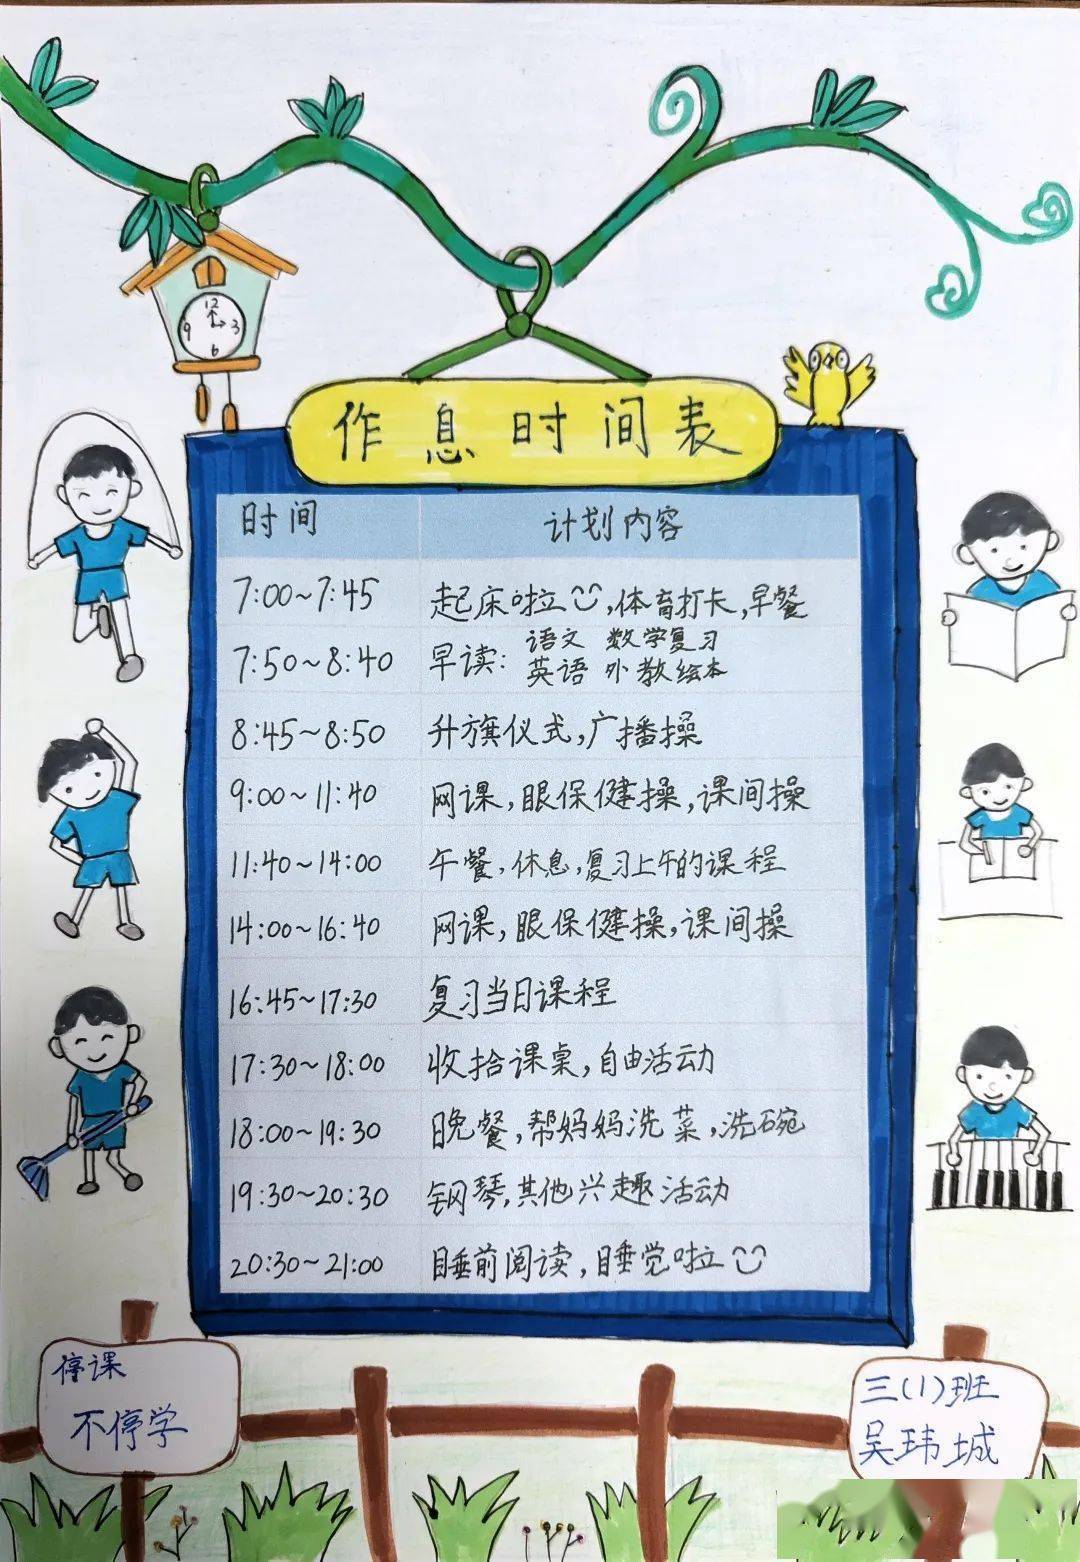 12
9 3
6
作息时间表
时间 计划内容
7:00~7:45 起床啦，体育打卡，早餐
7:50~8:40 早读：语文 数学复习
英语 外教绘本
8:45~8:50 升旗仪式，广播操
9:00~11:40 网课，眼保健操，课间操
11:40~14:00 午餐，休息，复习上午的课程
14:00~16:40 网课，眼保健操，课间操
16:45~17:30 复习当日课程
17:30~18:00 收拾课桌，自由活动
18:00~19:30 晚餐，帮妈妈洗菜，洗碗
19:30~20:30 钢琴，其他兴趣活动
20:30~21:00 睡前阅读，睡觉啦
停课
不停学
三(1)班
吴玮城